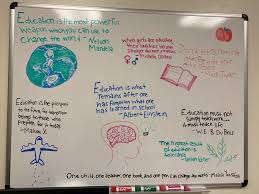 Education is the most powerful
weapon which you can use to
change the world - Nelson
Mandela
When girls are educated,
their countries become
stronger and more
- Michelle Obama
Don't let schooling
- Mark Twain
Education is what
remains after one
has forgotten what one
has learned in school
- Albert Einstein
Education is the passport
to the future, for tomorrow
belongs to those who
prepare for it today
- Malcolm X
Education must not
simply teach work -
it must teach life
- W.E.B Du Bois
The highest result
of education is
tolerance
- Helen Keller
One child, one teacher, one book, and one pen can change the world - Malala